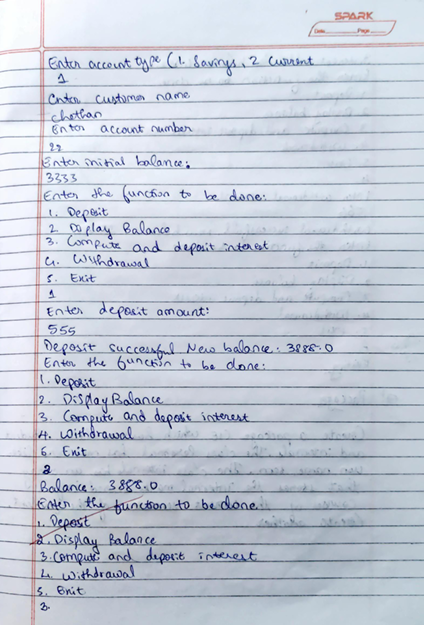 SPARK
Date Page
Enter account type (1. Savings, 2 Current
1
Enter customer name
chethan
Enter account number
22
Enter initial balance:
3333
Enter the function to be done:
1. Deposit
2 Display Balance
3. Compute and deposit interest
4. Withdrawal
5. Exit
1
Enter deposit amount:
555
Deposit successful New balance: 3888.0
Enter the function to be done:
1. Deposit
2. Display Balance
3. Compute and deposit interest
4. Withdrawal
5. Exit
2
Balance: 3888.0
Enter the function to be done.
1. Deposit
2. Display Balance
3. Compute and deposit interest
4. Withdrawal
5. Exit
3